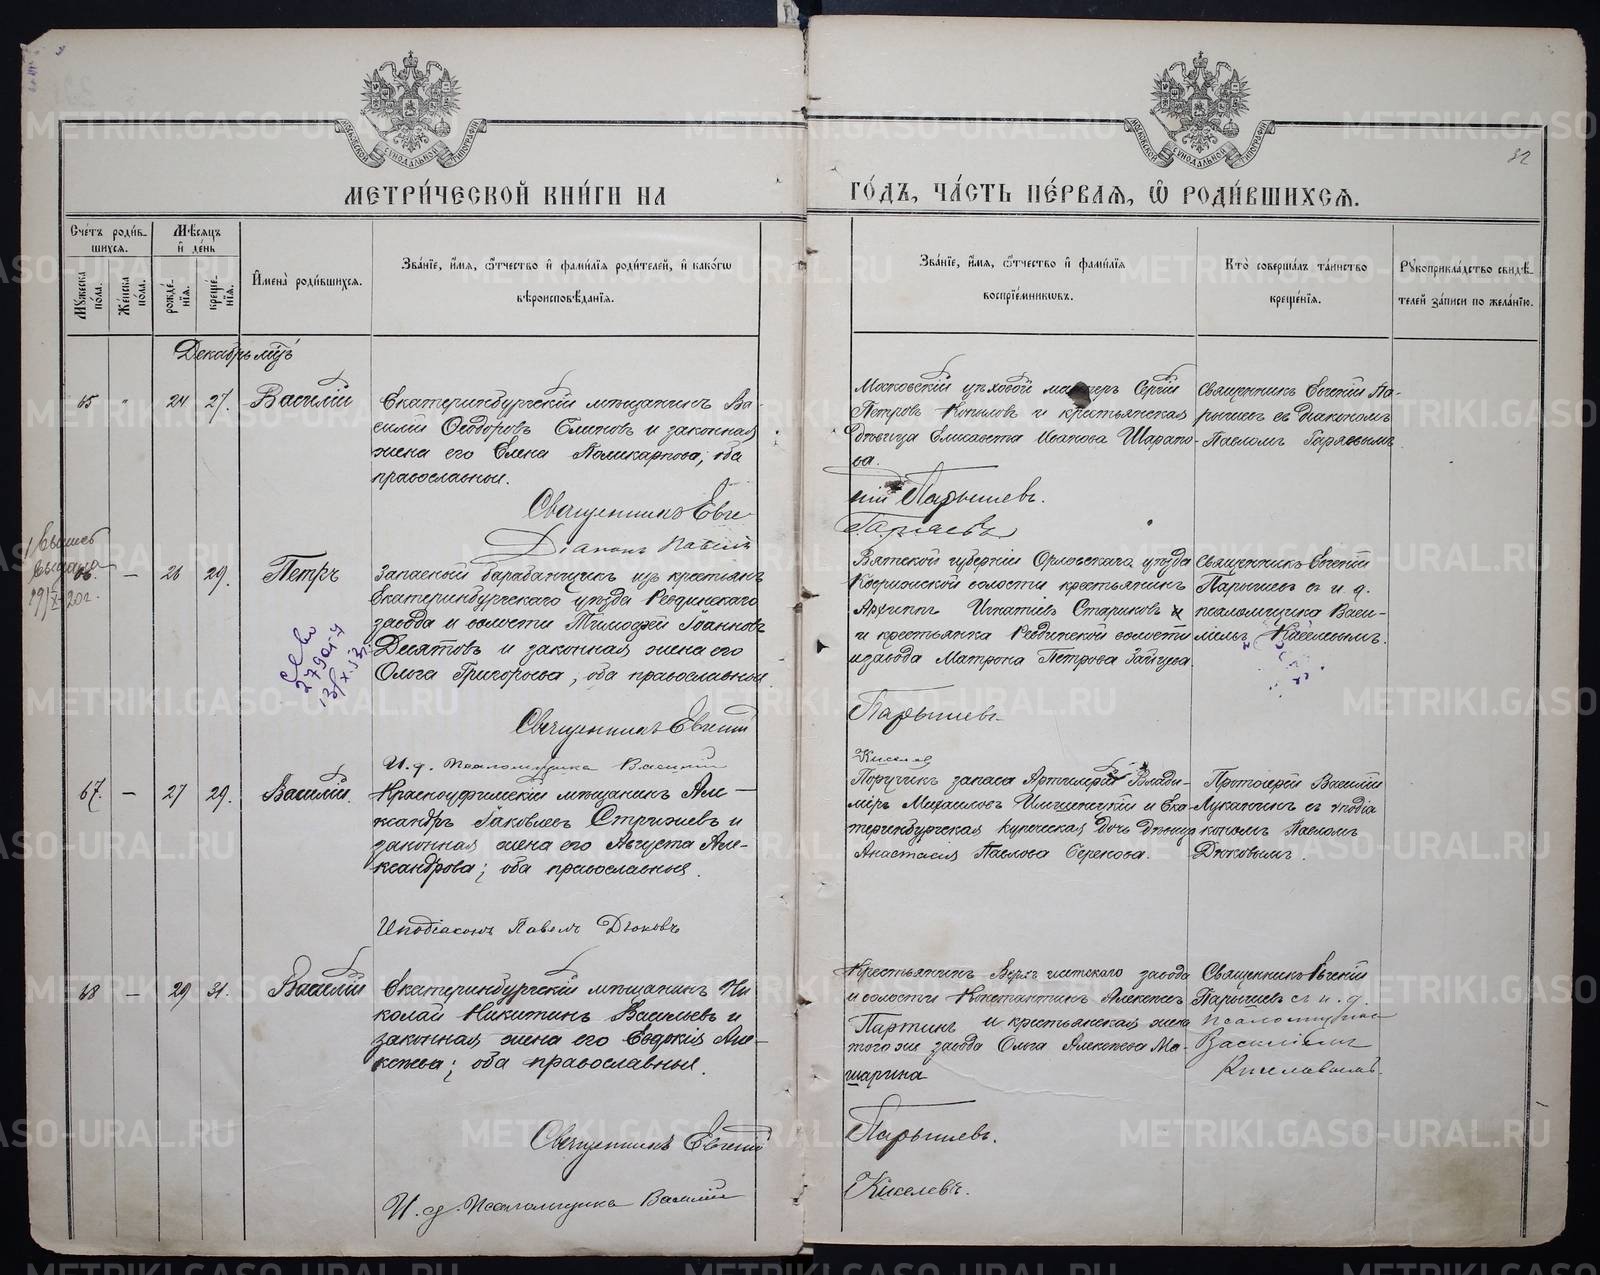 МЕТРИ́ЧЕСКОЙ КНИ́ГИ НА
ГО́ДЪ, ЧА́СТЬ ПЕ́РВАѦ, Ѿ РОДИ́ВШИХСѦ.
32
Сче́тъ роди́в-
шихсѧ.
Мꙋ́жеска
по́ла.
Же́нска
по́ла.
Мѣ́сѧцъ
и҆ де́нь
рожде́-
нїѧ.
креще́-
нїѧ.
И҆мена̀ роди́вшихсѧ.
Зва́нїе, и҆́мѧ, ѻ҆́тчество и҆ фами́лїѧ роди́телей, и҆ како́гѡ
вѣроисповѣ́данїѧ.
Зва́нїе, и҆́мѧ, ѻ҆́тчество и҆ фами́лїѧ
воспрїе́мникѡвъ.
Кто̀ соверша́лъ та́инство
креще́нїѧ.
Рꙋкоприкла́дство свидѣ́-
телей за́писи по жела́нїю.
Декабрь мѣ́ц
65
"
24
27.
Василій
Екатеринбургскій мѣщанинъ Ва-
силій Ѳеодоровъ и законная
жена его Елена Поликарпова; оба
православные.
Священникъ Евге-
Діаконъ Павелъ
Московскій цѣховой Сергій
Петровъ Копыловъ и крестьянская
дѣвица Елисавета Иванова Шарапо-
ва.
ній Парышев.
Гаряевъ
Священникъ Евгеній Па-
рышевъ съ діакономъ
Павломъ Гаряевымъ
66.
—
26
29.
Петръ
Запасной барабанщикъ изъ крестьянъ
Екатеринбургскаго уѣзда Ревдинскаго
завода и волости Тимоѳей Іоанновъ
Десятовъ и законная жена его
Ольга Григорьева, оба православные
Священникъ Евгеній
И. д. псаломщика Василій
Вятской губерніи Орловскаго уѣзда
волости крестьянинъ
Архипъ Игнатіевъ Стариковъ и
и крестьянка Ревдинской волости
и завода Матрона Петрова Зайцева
Парышевъ
Киселевъ
Священникъ Евгеній
Парышевъ съ и. д.
псаломщика Васи-
ліемъ Киселевымъ.
67.
—
27
29.
Василій.
Красноуфимскій мѣщанинъ Але-
ксандръ Іаковлевъ Стрижевъ и
законная жена его Августа Але-
ксандрова; оба православные.
Иподіаконъ Павелъ Дюковъ
Поручикъ запаса Артиллеріи Влади-
міръ Михаиловъ и Ека-
теринбургская купеческая дочь дѣвица
Анастасія Павлова Серекова.
Протоіерей Василій
Луканинъ съ иподіа
кономъ Павломъ
Дюковымъ.
68
—
29
31.
Василій
Екатеринбургскій мѣщанинъ Ни
колай Никитинъ Васильевъ и
законная жена его Евдокія Але-
ксѣева; оба православные.
Священникъ Евгеній
И. д. псаломщика Василій
Крестьянинъ Верхъ исетскаго завода
и волости Константинъ Алексѣевъ
Партинъ и крестьянская жена
того же завода Ольга Алексѣева Ма-
шарина
Парышевъ.
Киселевъ.
Священникъ Евгеній
Парышевъ съ и. д.
псаломщика
Василіемъ
Киселевымъ.
METRIKI.GASO-URAL.RU